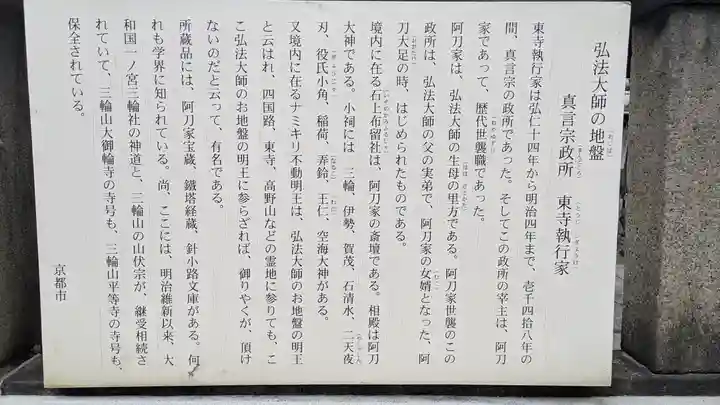 弘法大師の地盤
真言宗政所　東寺執行家
東寺執行家は弘仁十四年から明治四年まで、壱千四拾八年の
間、真言宗の政所であった。そしてこの政所の宰主は、阿刀
家であって、歴代世襲職であった。
阿刀家は、弘法大師の生母の里方である。阿刀家世襲のこの
政所は、弘法大師の父の実弟で、阿刀家の女婿となった、阿
刀大足の時、はじめられたものである。
境内に在る石上布留社は、阿刀家の斎壇である。相殿は阿刀
大神である。小祠には　三輪、伊勢、賀茂、石清水、二天夜
刃、役氏小角、稲荷、弄鈴、王仁、空海大神がある。
又境内に在るナミキリ不動明王は、弘法大師のお地盤の明王
と云はれ、四国路、東寺、高野山などの霊地に参りても、こ
こ弘法大師のお地盤の明王に参らざれば、御りやくが、頂け
ないのだと云って、有名である。
所蔵品には、阿刀家宝蔵、鐵塔経蔵、針小路文庫がある。何
れも学界に知られている。尚、ここには、明治維新以来、大
和国一ノ宮三輪社の神道と、三輪山の山伏宗が、継受相続さ
れていて、三輪山大御輪寺の寺号も、三輪山平等寺の寺号も、
保全されている。
京都市